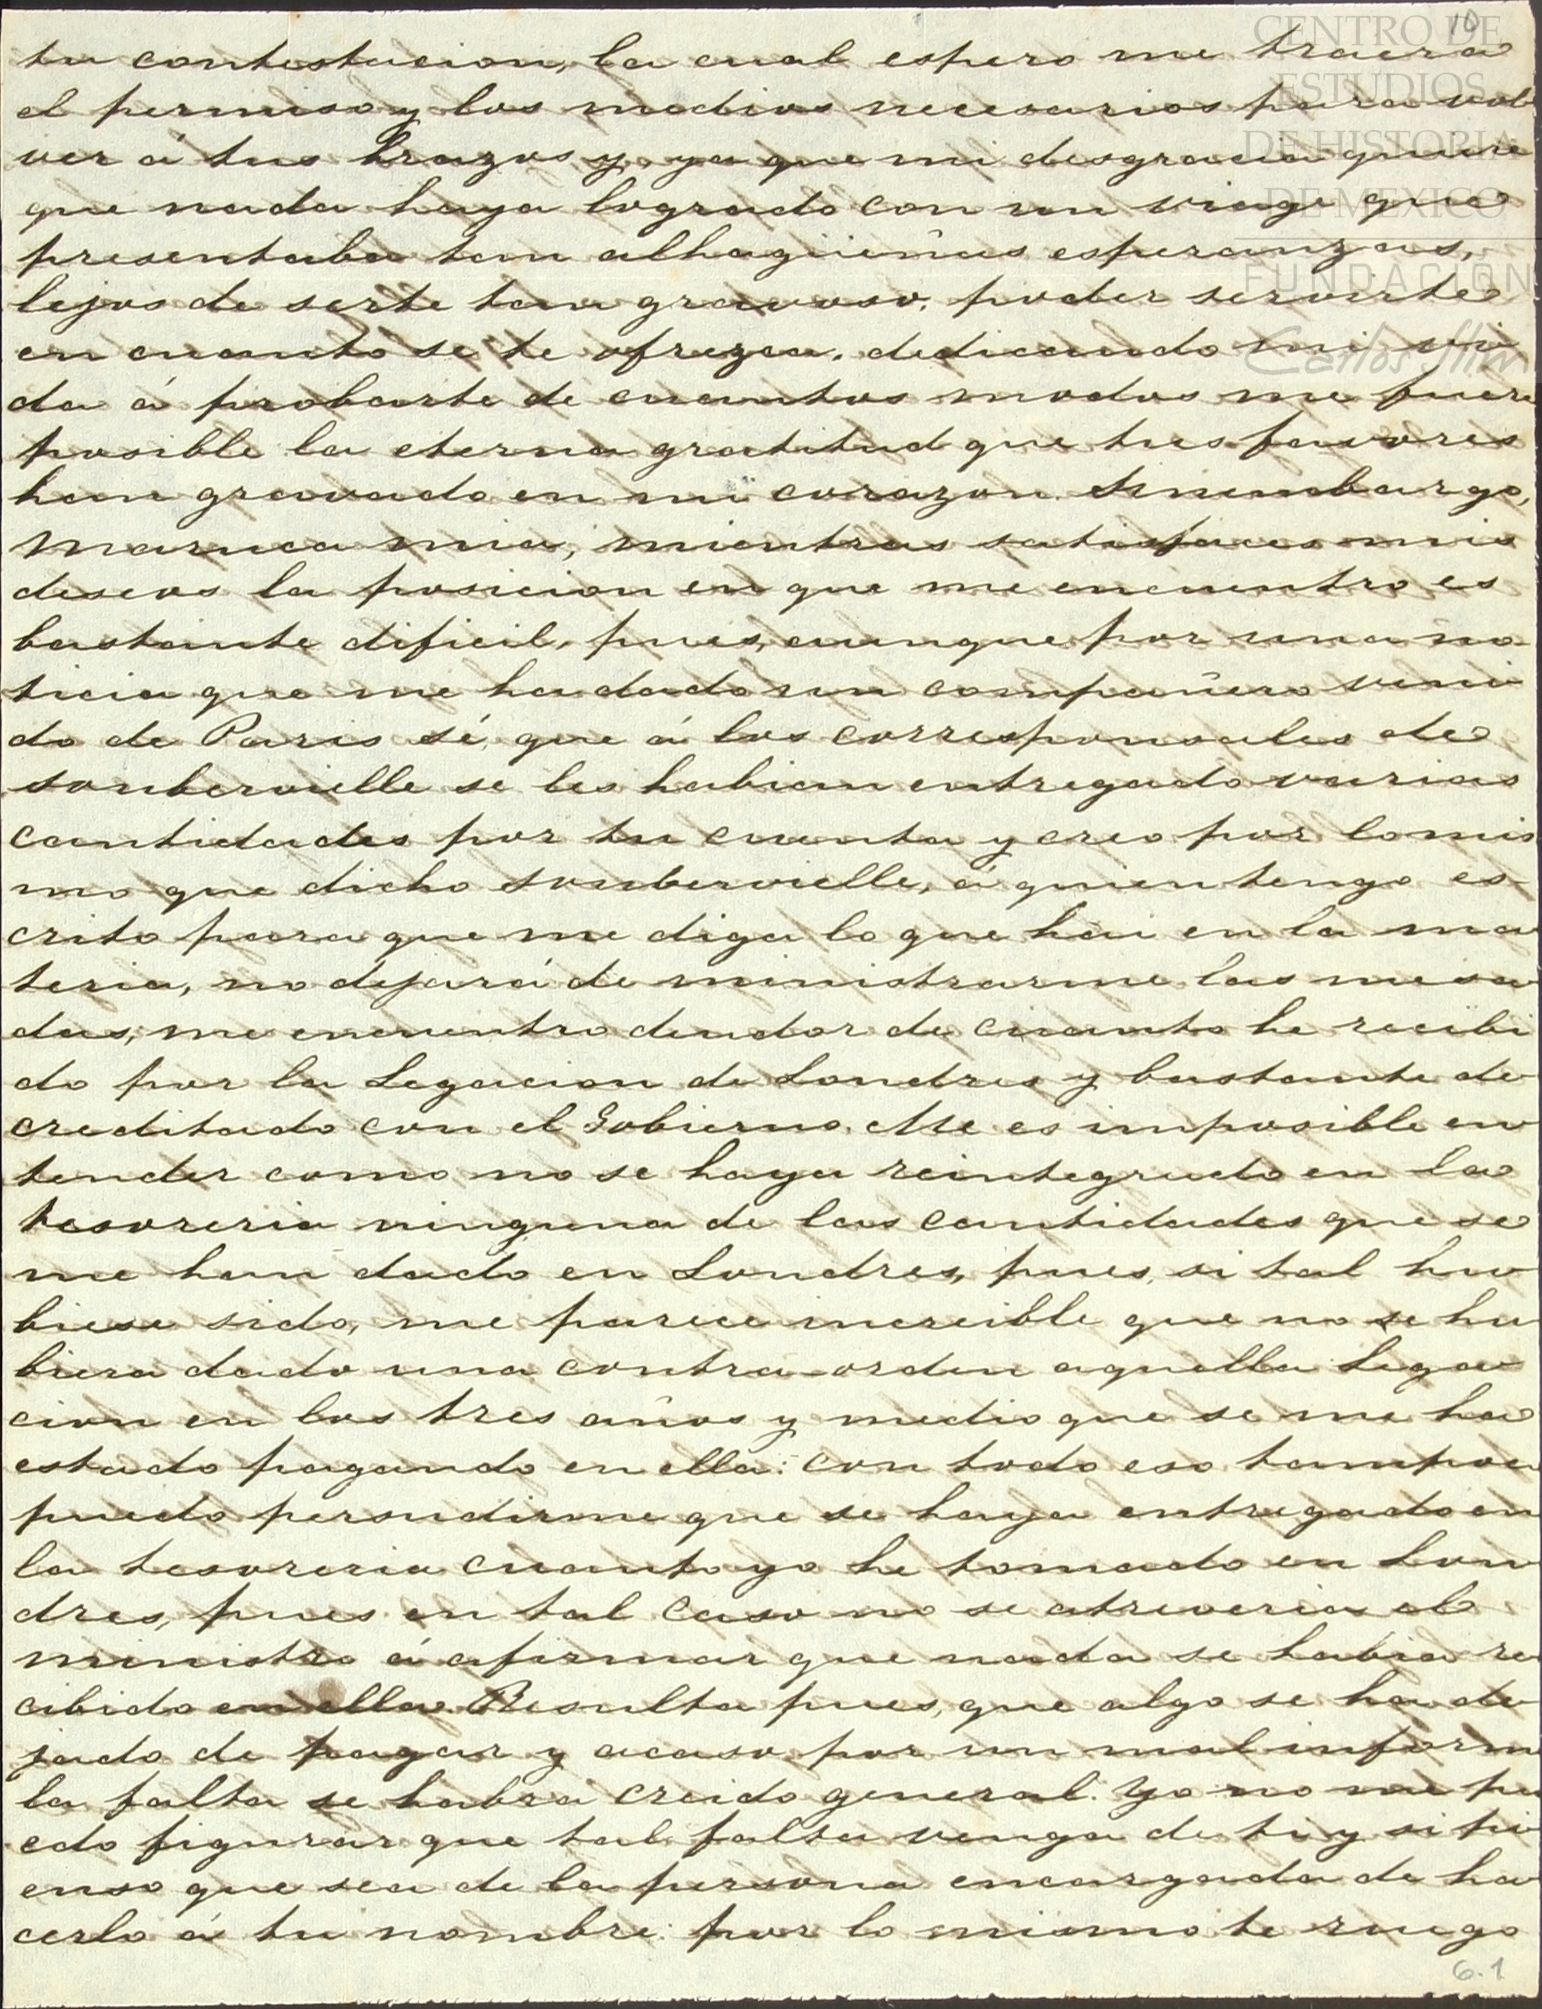 10
CENTRO DE
ESTUDIOS
DE HISTORIA
DE MEXICO
FUNDACIÓN
Carlos Slim
tu contestacion, la cual espero me traera
el permiso y los medios necesarios para vol
ver á tus brazos y, ya que mi desgracia quiere
que nada haya logrado con un viage que
presentaba tan alhagüeñas esperanzas,
lejos de serte tan gravoso, poder servirte
en cuanto se te ofrezca, dedicando mi vi
da á probarte de cuantos modos me fuere
posible la eterna gratitud que tus favores
han gravado en mi corazon. Sinembargo,
Maruca mia, mientras satisfaces mis
deseos la posicion en que me encuentro es
bastante dificil, pues, aunque por una no-
ticia que me ha dado un compañero veni
do de Paris sé, que á los corresponsales de
Soubervielle se les habian entregado varias
cantidades por tu cuenta y creo por lo mis
mo que dicho Soubervielle, á quien tengo es-
crito para que me diga lo que hai en la ma
teria, no dejará de ministrarme las mesa
das, me encuentro deudor de cuanto he recibi
do por la Legacion de Londres y bastante de
creditado con el Gobierno. Me es imposible en
tender como no se haya reintegrado en la
tesoreria ninguna de las cantidades que se
me han dado en Londres, pues, si tal hu
biese sido, me parece increible que no se hu
biera dado una contra-orden aquella Lega
cion en los tres años y medio que se me ha
estado pagando en ella: con todo eso tampoco
puedo persudirme que se haya entregado en
la tesoreria cuanto yo he tomado en Lon
dres, pues en tal caso no se atreveria el
ministro á afirmar que nada se habia re
cibido en ella. Resulta pues, que algo se ha de
jado de pagar y acaso por un mal inform
la falta se habrá creido general. Yo no me pu
edo figurar que tal falta venga de ti y si pi
enso que sea de la persona encargada de ha
cerlo á tu nombre: por lo mismo te ruego
6.1